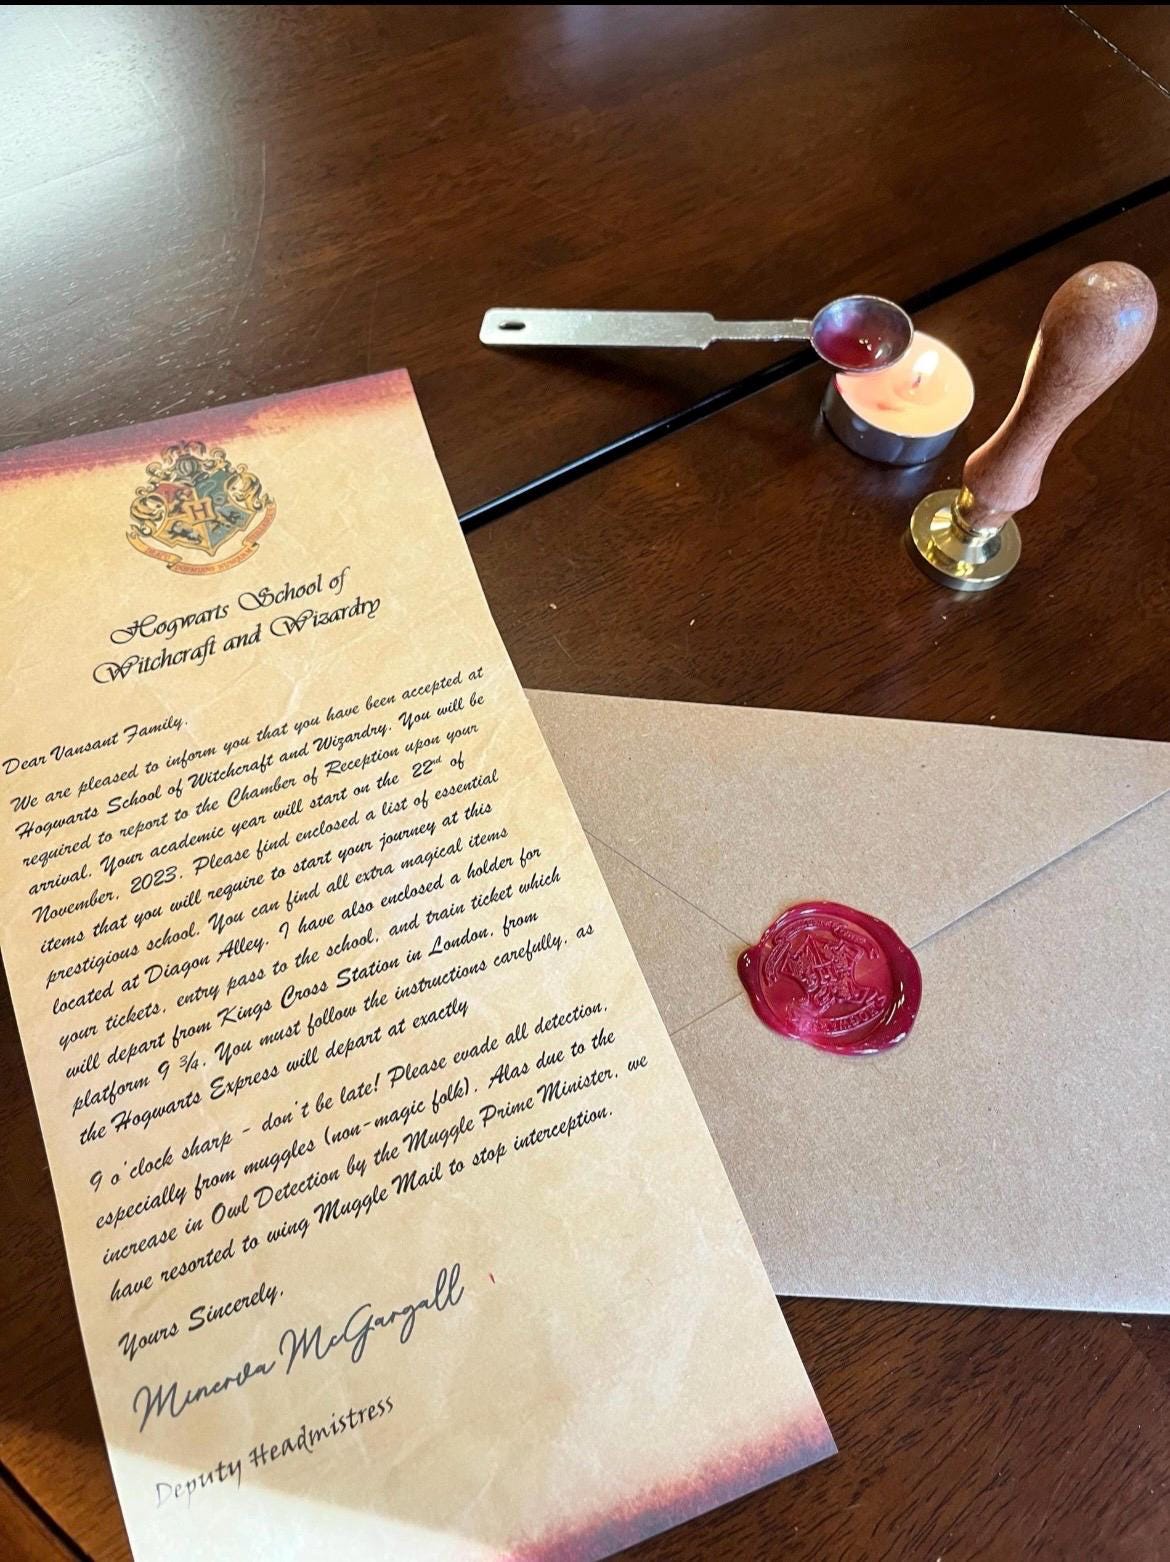 H
DRACO DORMIENS NUNQUAM
Hogwarts School of
Witchcraft and Wizardry
Dear Vansant Family,
We are pleased to inform you that you have been accepted at
Hogwarts School of Witchcraft and Wizardry. You will be
required to report to the Chamber of Reception upon your
arrival. Your academic year will start on the 22nd of
November, 2023. Please find enclosed a list of essential
items that you will require to start your journey at this
prestigious school. You can find all extra magical items
located at Diagon Alley. I have also enclosed a holder for
your tickets, entry pass to the school, and train ticket which
will depart from Kings Cross Station in London, from
platform 9 ¾. You must follow the instructions carefully, as
the Hogwarts Express will depart at exactly
9 o'clock sharp - don't be late! Please evade all detection,
especially from muggles (non-magic folk). Alas due to the
increase in Owl Detection by the Muggle Prime Minister, we
have resorted to wing Muggle Mail to stop interception.
Yours Sincerely,
Minerva McGargall
Deputy Headmistress